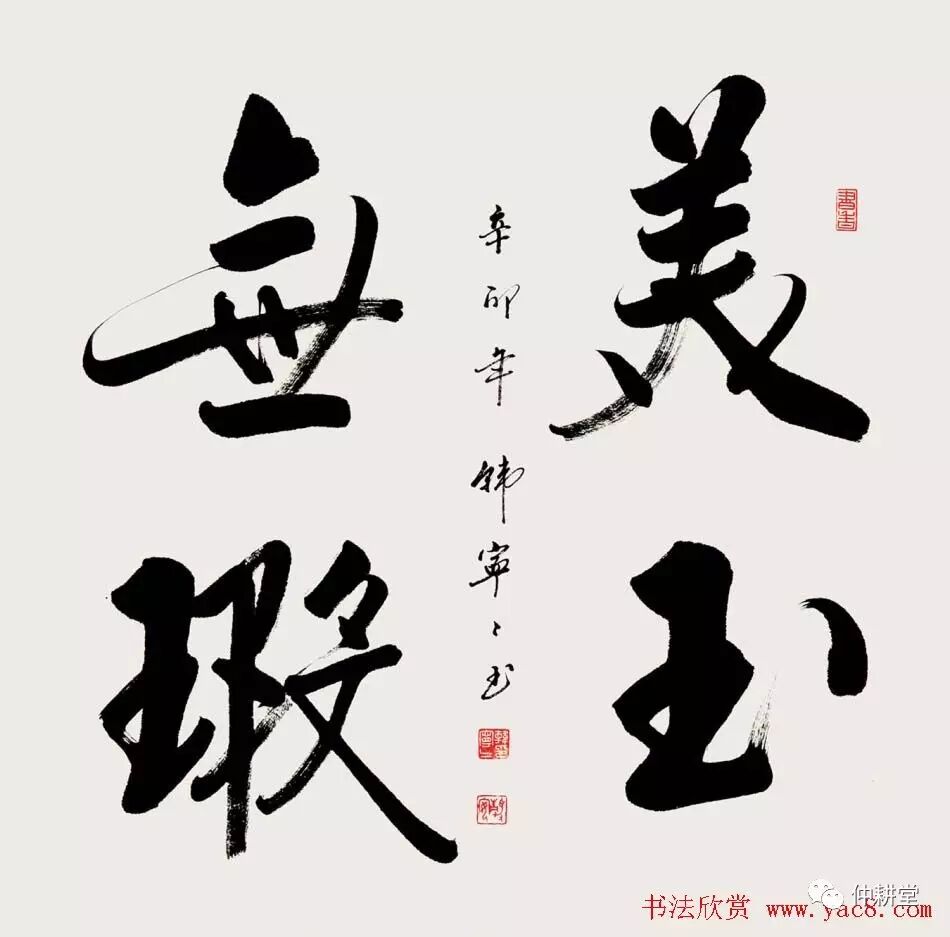 美玉
無瑕
辛卯年韩寧宁书
書香
仲耕堂
书法欣赏 www.yac8.com